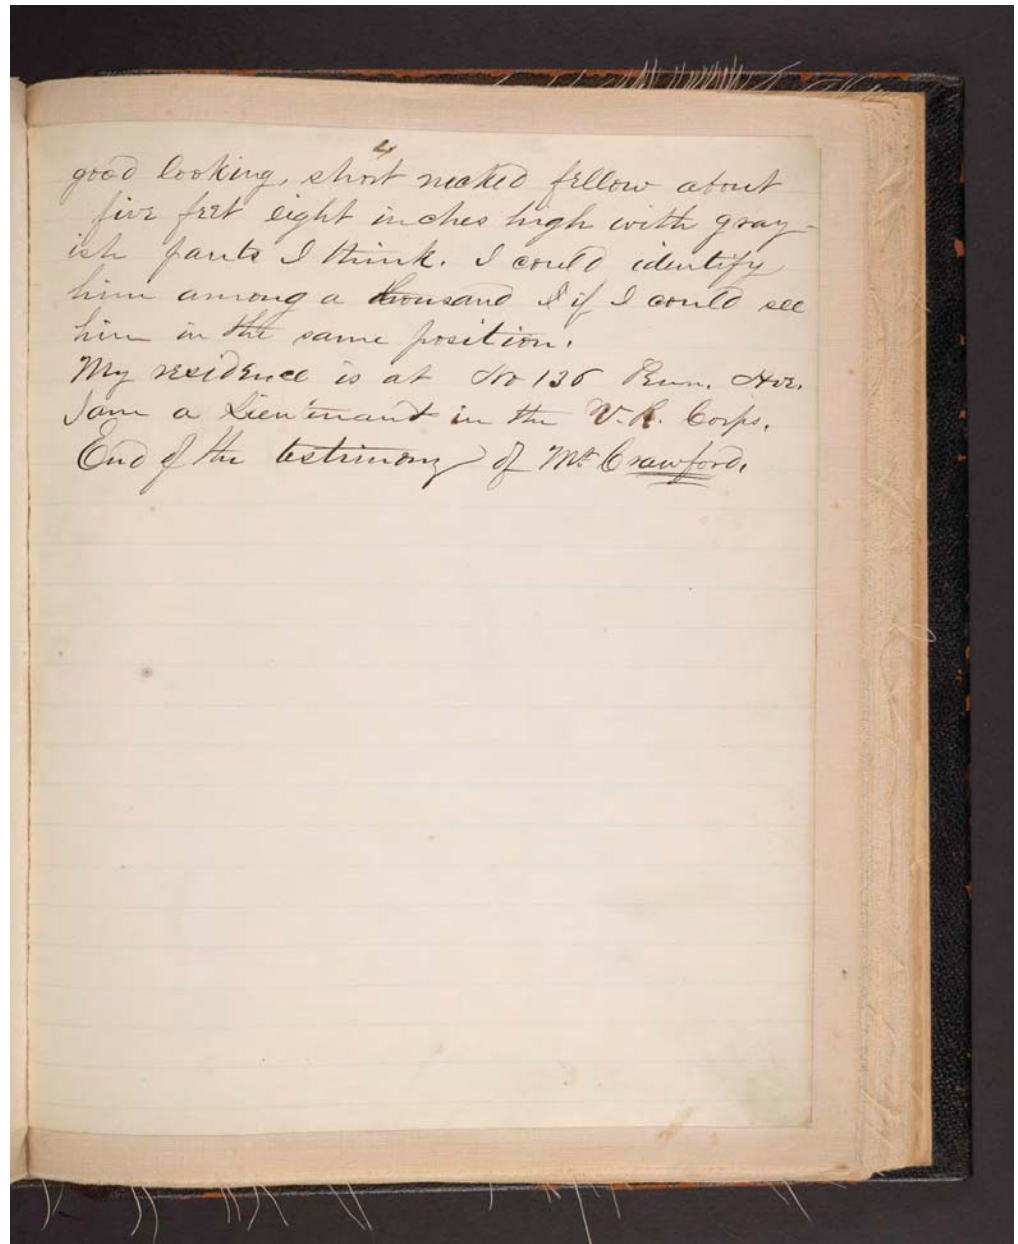 4
good looking, short necked fellow about
five feet eight inches high with gray-
ish pants I think. I could identify
him among a thousand I if I could see
him in the same position.
My residence is at No 136 Penn. Ave.
I am a Lieutenant in the V. R. Corps.
End of the testimony of Mr Crawford.